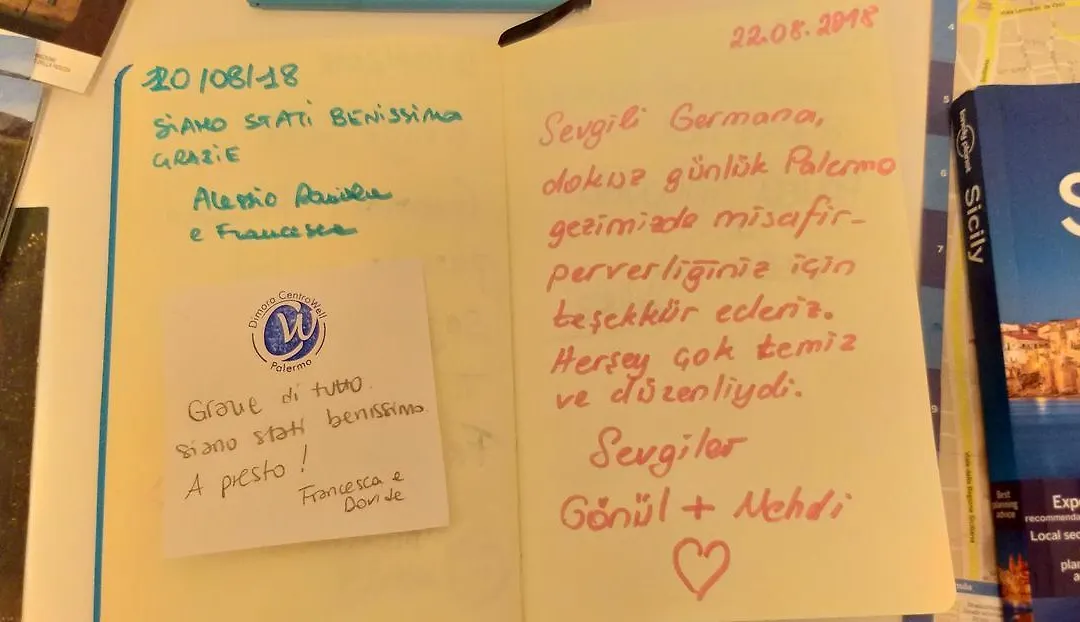 20/08/18
SIAMO STATI BENISSIMO
GRAZIE
Alessio Daniele
e Francesca
Dimora CentroWell
Palermo
Grazie di tutto.
siamo stati benissimo.
A presto!
Francesca e
Davide
22.08.2018
Sevgili Germana,
dokuz günlük Palermo
gezimizde misafir-
perverliğiniz için
teşekkür ederiz.
Herşey çok temiz
ve düzenliydi.
Sevgiler
Gönül + Mehdi
lonely planet
Sicily
S
Best
planning
advice
Exp
recommenda
Local sec
plan
a
5
6
7
9